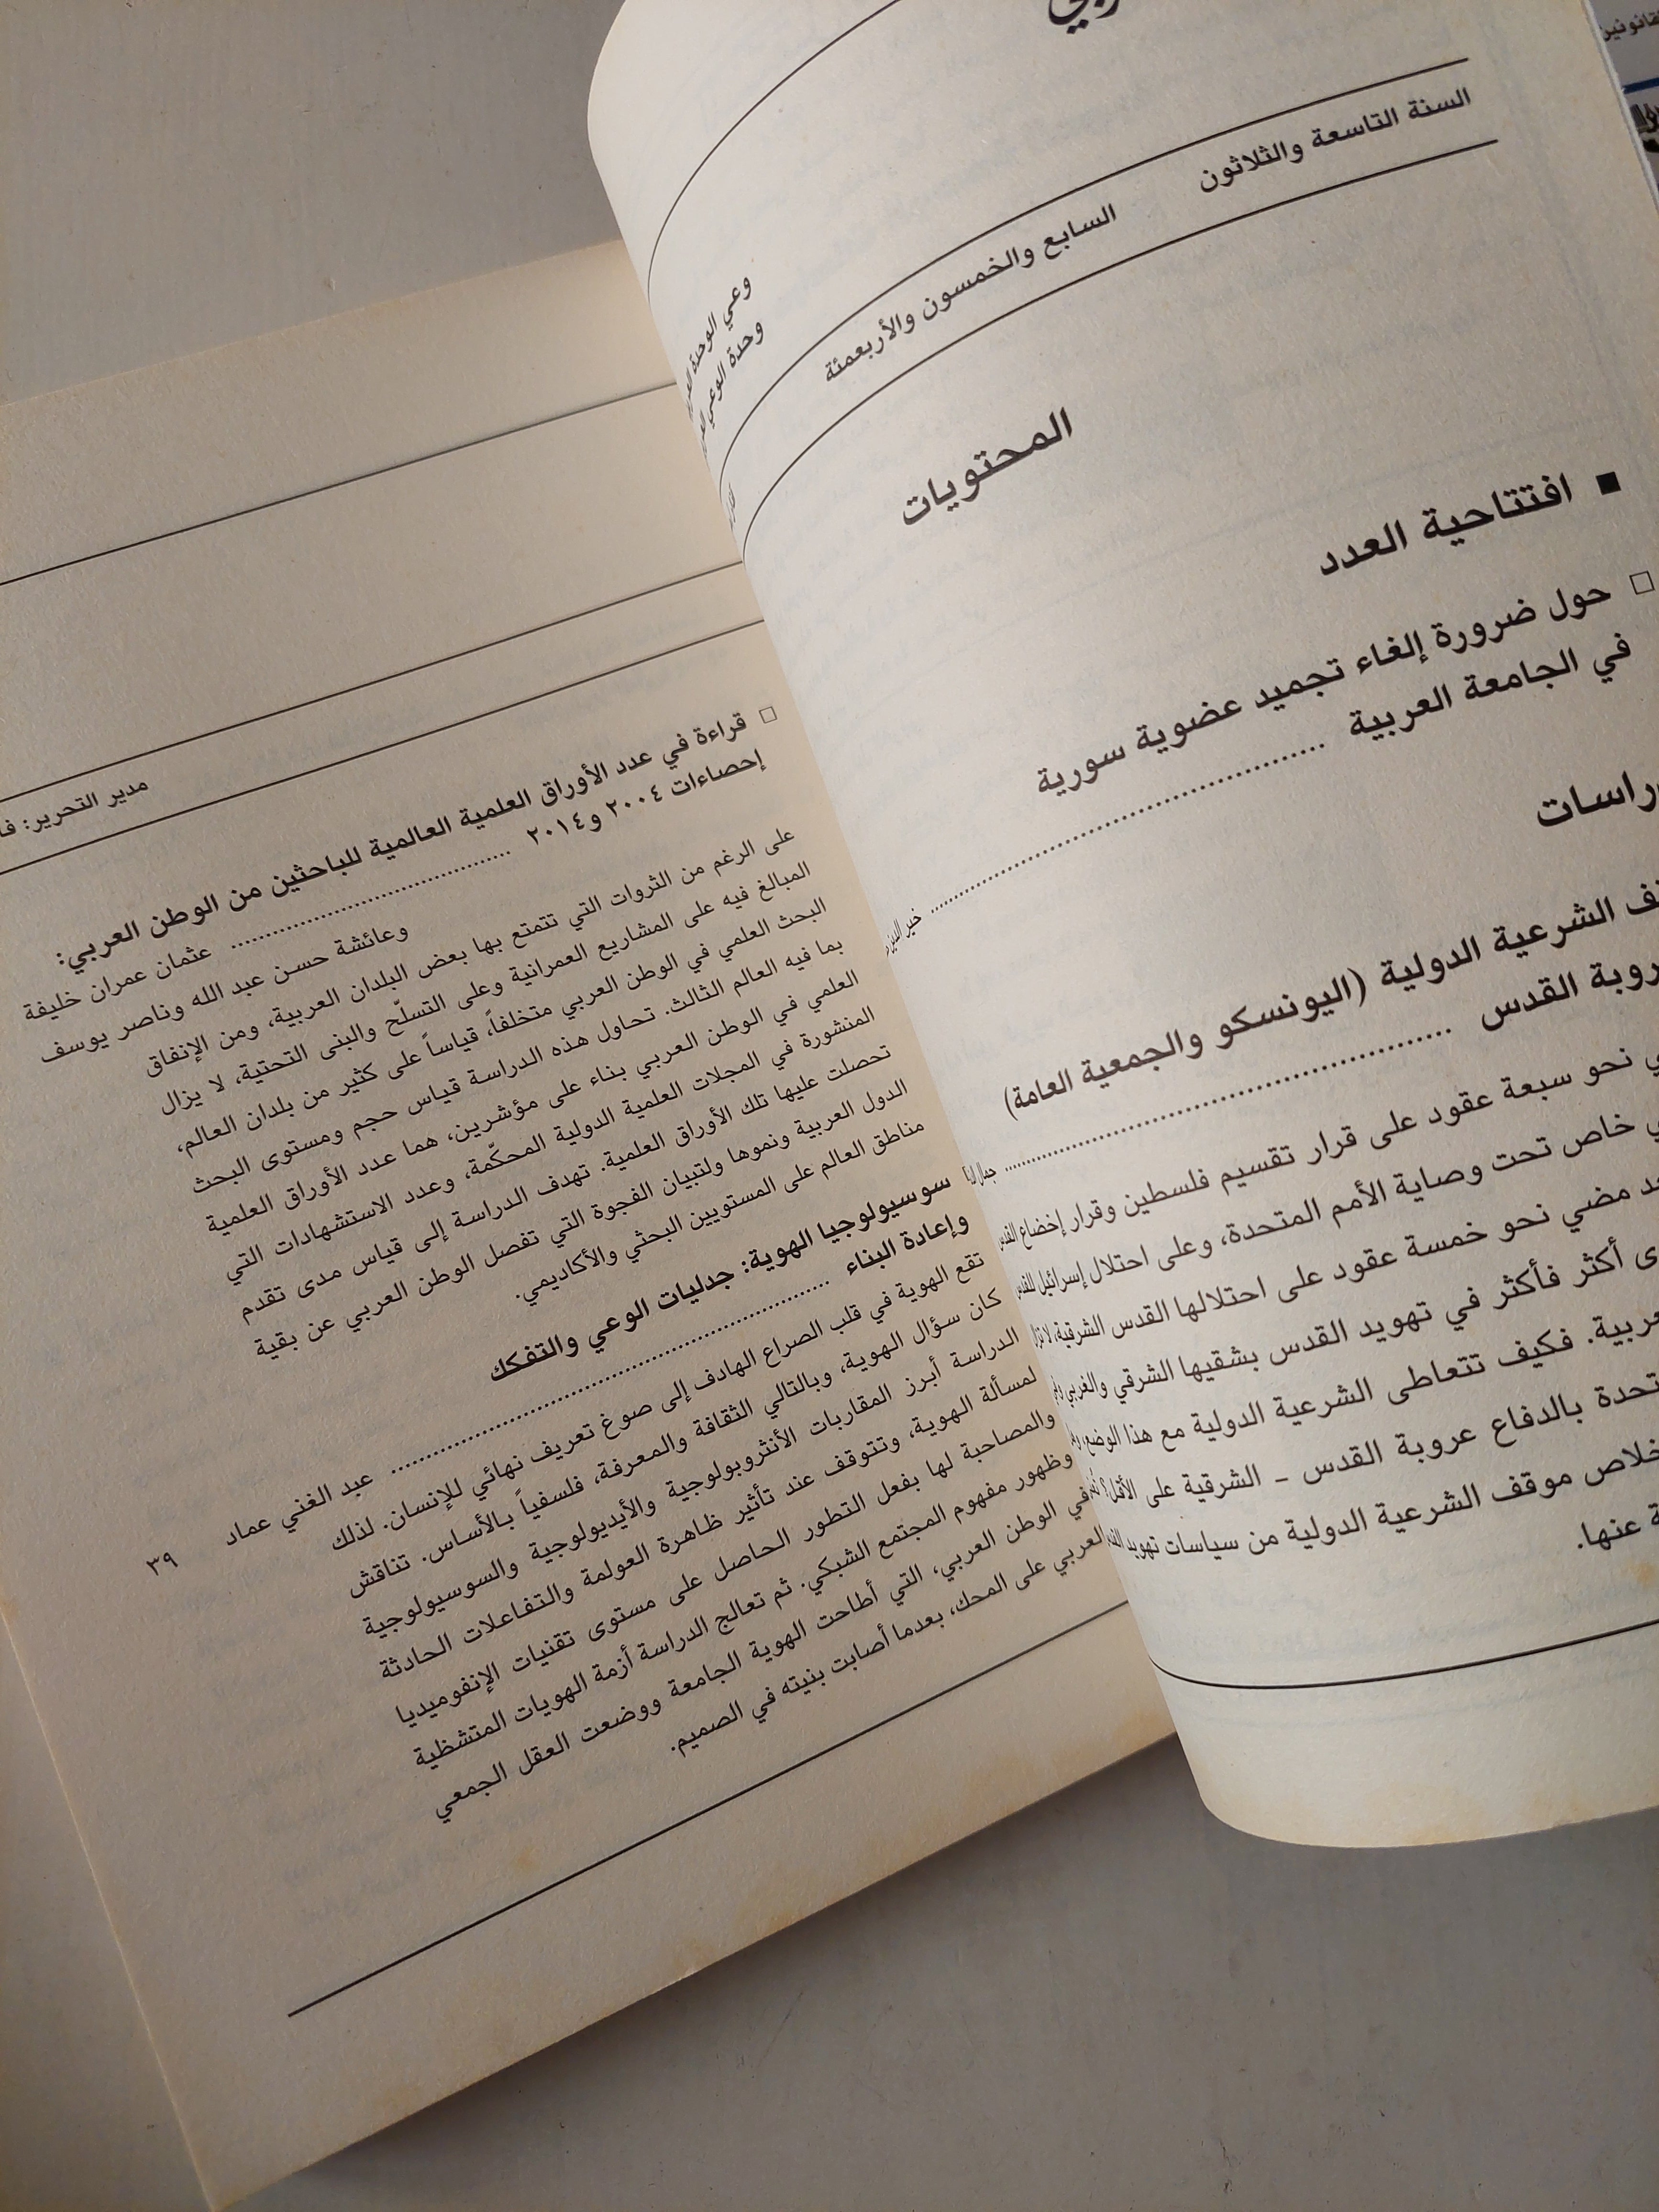 السنة التاسعة والثلاثون
السابع والخمسون والأربعمئة
وعي الوحدة
وحدة الوعي
المحتويات
■ افتتاحية العدد
□ حول ضرورة إلغاء تجميد عضوية سورية
في الجامعة العربية .......... خير الدين
الشرعية الدولية (اليونسكو والجمعية العامة)
القدس ..........
نحو سبعة عقود على قرار تقسيم فلسطين وقرار إخضاع
خاص تحت وصاية الأمم المتحدة، وعلى احتلال إسرائيل
مضي نحو خمسة عقود على احتلالها القدس الشرقية،
أكثر فأكثر في تهويد القدس بشقيها الشرقي والغربي
فكيف تتعاطى الشرعية الدولية مع هذا الوضع،
بالدفاع عروبة القدس - الشرقية على الأقل؟
موقف الشرعية الدولية من سياسات تهويد
عنها.
مدير التحرير:
□ قراءة في عدد الأوراق العلمية العالمية للباحثين من الوطن العربي:
إحصاءات ٢٠٠٤ و٢٠١٤ .......... عثمان عمران خليفة
وعائشة حسن عبد الله وناصر يوسف
على الرغم من الثروات التي تتمتع بها بعض البلدان العربية، ومن الإنفاق
المبالغ فيه على المشاريع العمرانية وعلى التسلّح والبنى التحتية، لا يزال
البحث العلمي في الوطن العربي متخلفاً، قياساً على كثير من بلدان العالم،
بما فيه العالم الثالث. تحاول هذه الدراسة قياس حجم ومستوى البحث
العلمي في الوطن العربي بناء على مؤشرين، هما عدد الأوراق العلمية
المنشورة في المجلات العلمية الدولية المحكّمة، وعدد الاستشهادات التي
تحصلت عليها تلك الأوراق العلمية. تهدف الدراسة إلى قياس مدى تقدم
الدول العربية ونموها ولتبيان الفجوة التي تفصل الوطن العربي عن بقية
مناطق العالم على المستويين البحثي والأكاديمي.
سوسيولوجيا الهوية: جدليات الوعي والتفكك
وإعادة البناء .......... عبد الغني عماد ٣٩
تقع الهوية في قلب الصراع الهادف إلى صوغ تعريف نهائي للإنسان. لذلك
كان سؤال الهوية، وبالتالي الثقافة والمعرفة، فلسفياً بالأساس. تناقش
الدراسة أبرز المقاربات الأنثروبولوجية والأيديولوجية والسوسيولوجية
لمسألة الهوية، وتتوقف عند تأثير ظاهرة العولمة والتفاعلات الحادثة
والمصاحبة لها بفعل التطور الحاصل على مستوى تقنيات الإنفوميديا
وظهور مفهوم المجتمع الشبكي. ثم تعالج الدراسة أزمة الهويات المتشظية
في الوطن العربي، التي أطاحت الهوية الجامعة ووضعت العقل الجمعي
العربي على المحك، بعدما أصابت بنيته في الصميم.